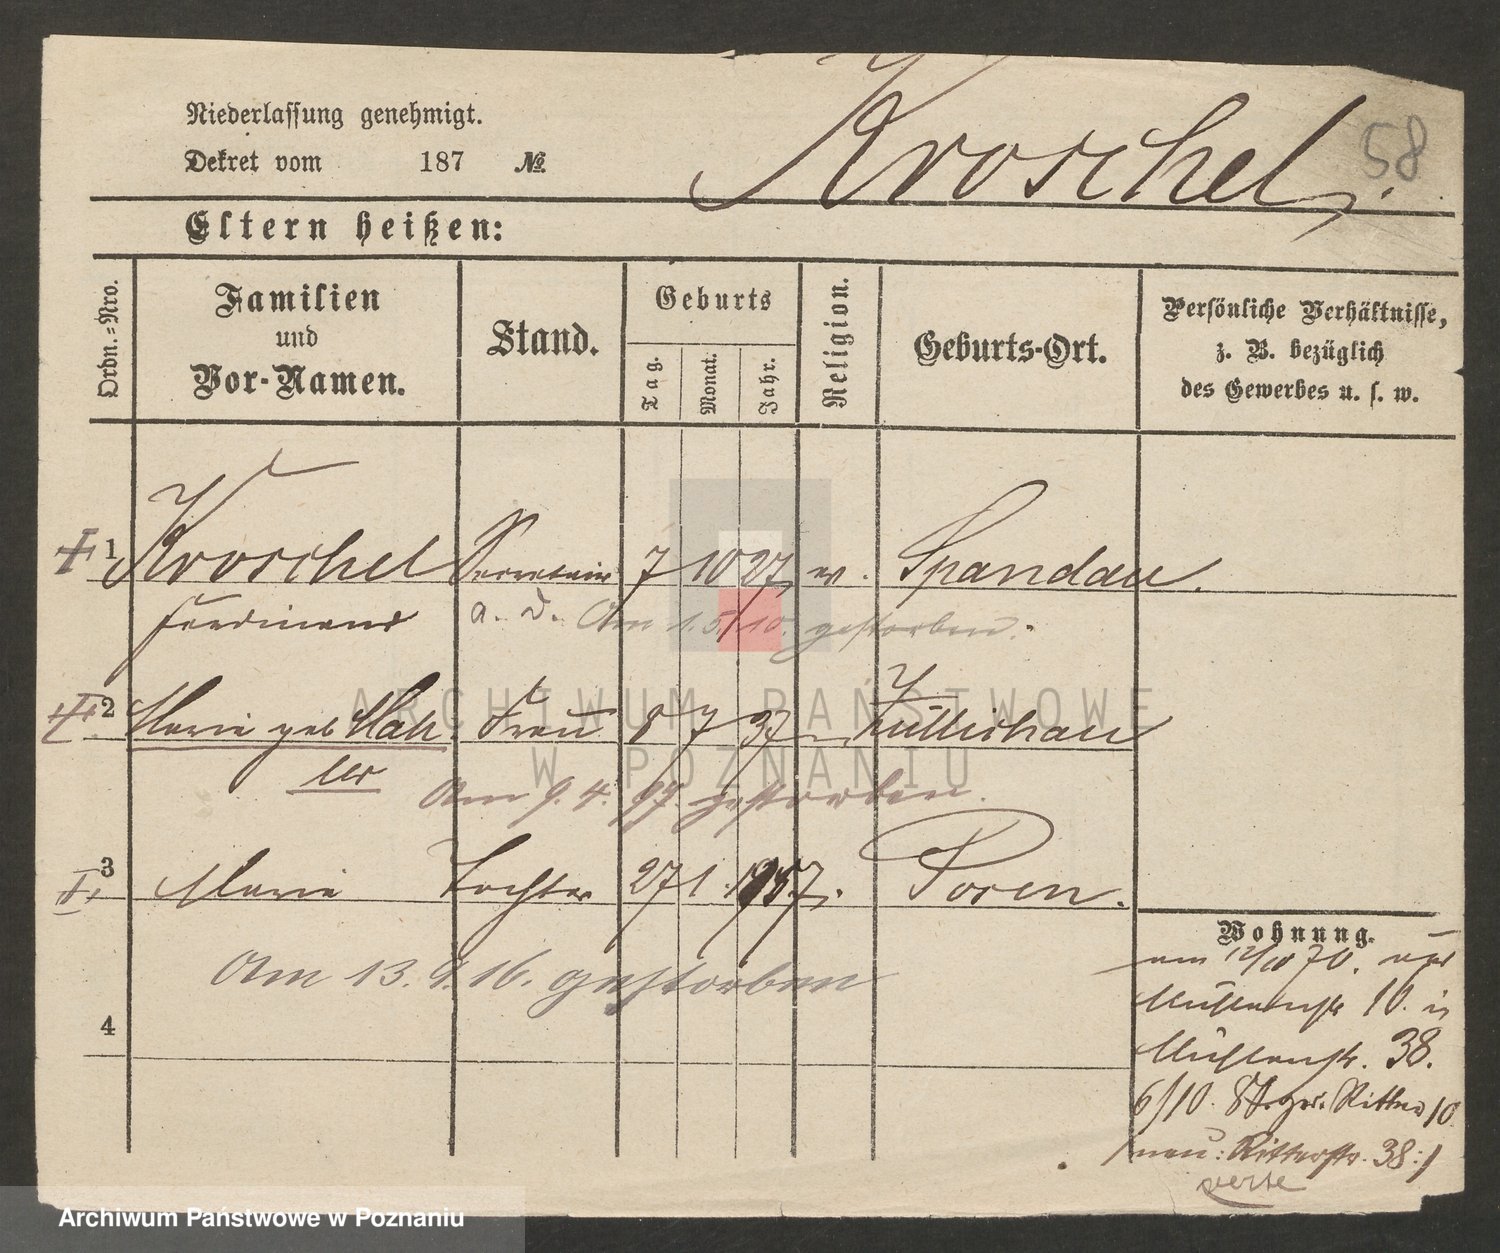 Niederlassung genehmigt.
Dekret vom 187 №
Kroschel
58
Eltern heißen:
Ordn.=Nro.
Familien
und
Vor-Namen.
Stand.
Geburts
Tag.
Monat.
Jahr.
Religion.
Geburts-Ort.
Persönliche Verhältnisse,
z. B. bezüglich
des Gewerbes u. s. w.
1 Kroschel Secretair 7 10 27 ev. Spandau.
Ferdinand a. D. Am 1.5.10. gestorben.
2 Marie geb Mah Frau 8 7 37 Züllichau
ler
Am 9. 4. 97. gestorben.
3 Marie Tochter 27 1 57. Posen.
Am 13. 9. 16. gestorben
4
Wohnung.
am 12/10 70. von
Mühlenstr 10. in
Mühlenstr. 38.
6/10. 87. Ritter 10
neu: Ritterstr. 38:/
verte
ARCHIWUM PAŃSTWOWE
W POZNANIU
Archiwum Państwowe w Poznaniu